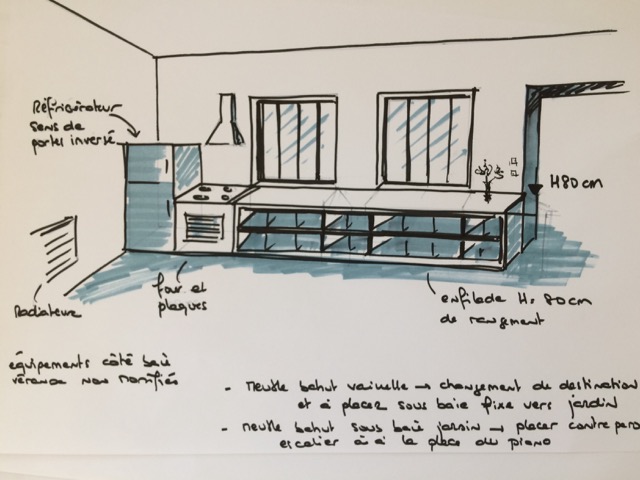 Réfrigérateur
sens de
portes inversé
H80cm
Radiateur
four et
plaques
enfilade H: 80cm
de rangement
équipements côté baie
véranda non modifiés
- meuble bahut vaisselle → changement de destination
et à placer sous baie fixe vers jardin
- meuble bahut sous baie jardin → placer contre
escalier à la place du piano